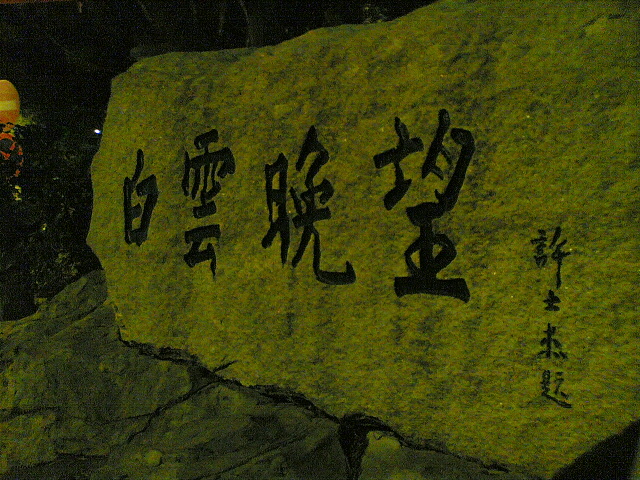 白雲晚望
許士杰題